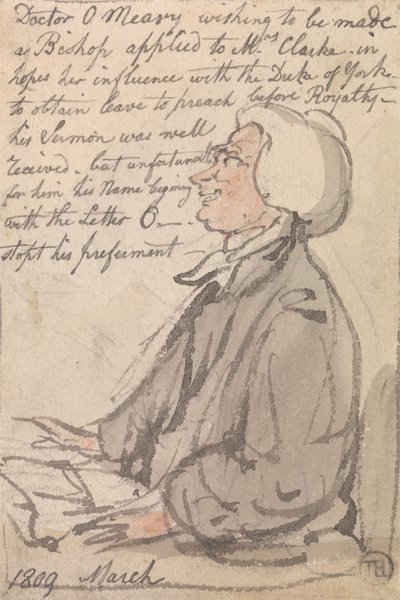 Doctor O Meary wishing to be made
a Bishop applied to Mrs Clarke in
hopes her influence with the Duke of York
to obtain leave to preach before Royalty
his Sermon was well
received - but unfortunately
for him his Name begining
with the Letter O —
stopt his preferment —
1809 March